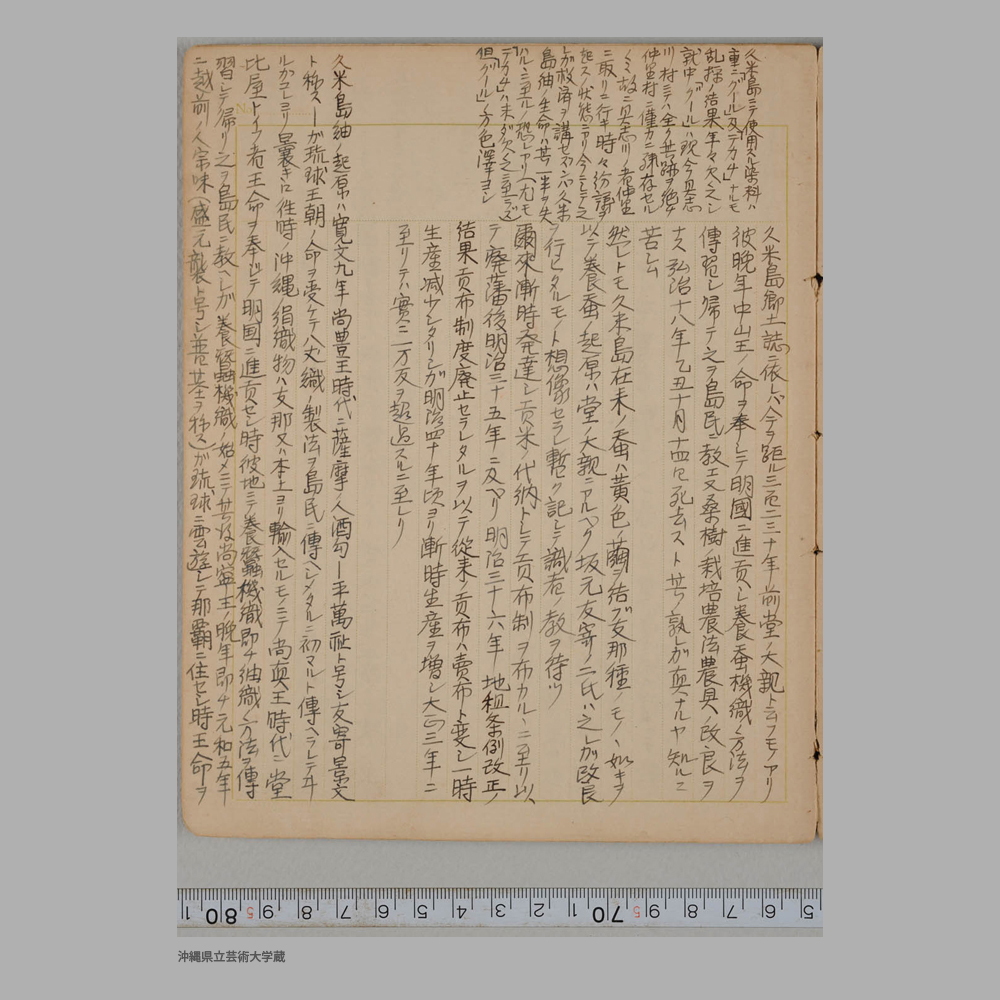 久米島ニテ使用スル染料ハ
重ニ「グール」及「テカチ」ナルモ
乱採ノ結果年々欠乏シ
就中「グール」ハ現今具志
川村ニテハ全ク其跡ヲ絶チ
仲里村ニ僅カニ残存セル
ノミ故ニ具志川ノ者仲里
ニ取リニ行キ時々紛議ヲ
起スノ状態ナリ今ニシテ之
レガ救済ヲ講セズンバ久米
島紬ノ生命ハ其一半ヲ失
ハルニ至ルノ恐レアリ(尤モ
テカチハ未ダ欠乏ニ至ラズ)
但「グール」ノ方色澤ヨシ
久米島郷土誌ニ依レバ今ヲ距ル三百二三十年前堂ノ大親ト云フモノアリ
彼晩年中山王ノ命ヲ奉シテ明國ニ進貢シ養蚕機織ノ方法ヲ
傳習シ帰テ之ヲ島民ニ教エ又桑樹ノ栽培農法農具ノ改良ヲ
ナス 弘治十八年乙丑十月十四日死去スト 其ノ孰レガ真ナルヤ 知ルニ
苦シム
然レトモ久米島在来ノ蚕ハ黄色ノ繭ヲ結ブ支那種ノモノヽ如キヲ
以テ養蚕ノ起原ハ堂ノ大親ニアルベク坂元友寄ノ二氏ハ之レガ改良
ヲ行ヒタルモノト想像セラレ暫ク記シテ識者ノ教ヲ待ツ
爾来漸時発達シ貢米ノ代納トシテ貢布制ヲ布カルヽニ至リ以
テ廃藩後明治三十五年ニ及ベリ 明治三十六年 地租条例改正ノ
結果貢布制度廃止セラレタルヲ以テ従来ノ貢布ハ売布ト変シ一時
生産減少シタリシガ明治四十年頃ヨリ漸時生産ヲ増シ大正三年ニ
至リテハ實ニ二万反ヲ超過スルニ至レリ
久米島紬ノ起原ハ寛文九年 尚豊王時代ニ薩摩ノ人酒匂一平萬祉ト号シ友寄景文
ト称スーガ琉球王朝ノ命ヲ受ケテ八丈織ノ製法ヲ島民ニ傳ヘシタルニ初マルト傳ヘラレテヰ
ルガコレヨリ曩キニ往時ノ沖縄絹織物ハ支那又ハ本土ヨリ輸入セルモノニテ尚真王時代ニ堂
比屋トイフ者王命ヲ奉ジテ明国ニ進貢セシ時彼地ニテ養蠶機織即チ紬織ノ方法ヲ傳
習シテ帰リ之ヲ島民ニ教ヘシガ養蠶機織ノ始メニテ其後尚寧王ノ晩年即チ元和五年
ニ越前ノ人宗味(盛元襲ト号シ普基ヲ称ス)ガ琉球ニ雲遊シテ那覇ニ住セシ時王命ヲ
1 80 9 8 7 6 5 4 3 2 1 70 9 8 7 6 5
沖縄県立芸術大学蔵